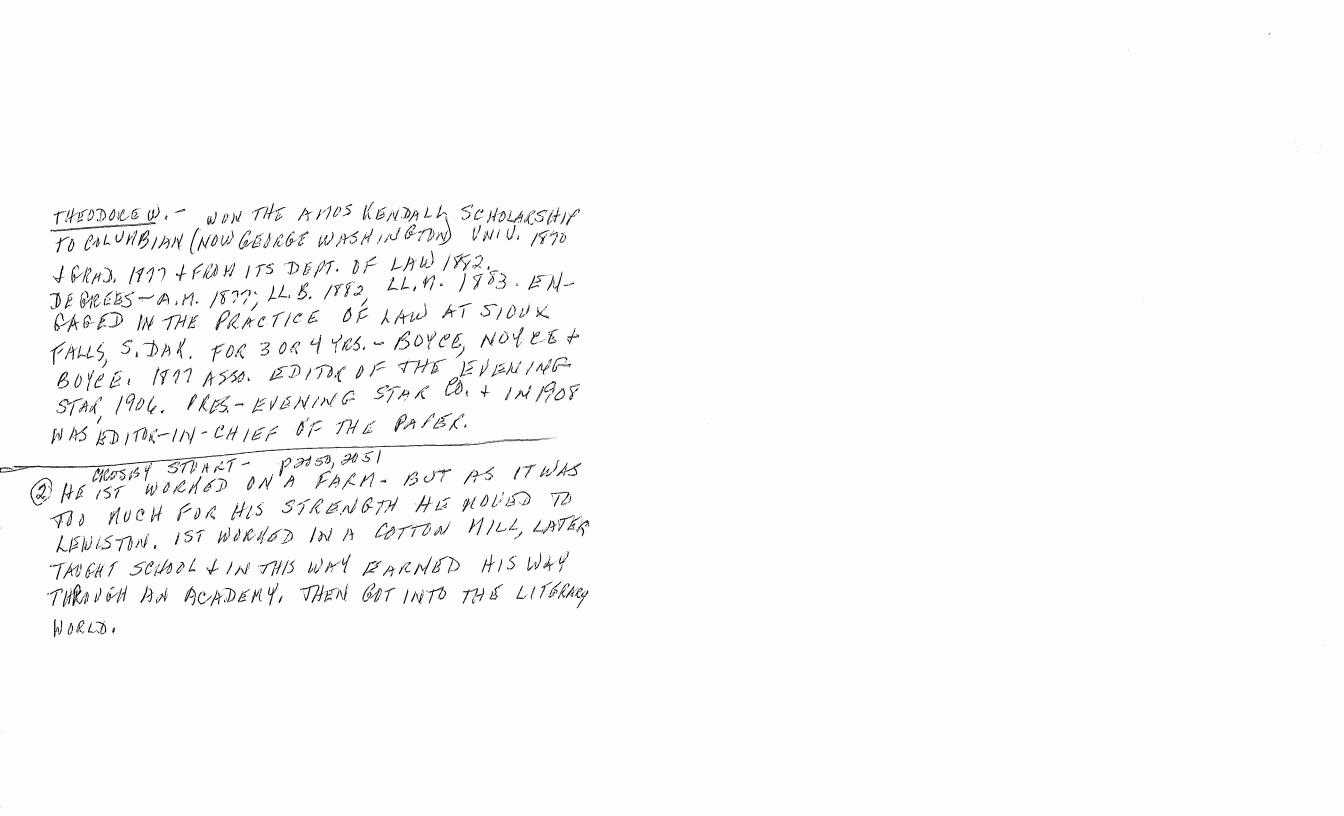 THEODORE W. - WON THE AMOS KENDALL SCHOLARSHIP
TO COLUMBIAN (NOW GEORGE WASHINGTON) UNIV. 1870
& GRAD. 1877 & FROM ITS DEPT. OF LAW 1882.
DEGREES - A.M. 1877; LL.B. 1882, LL.M. 1883. EN-
GAGED IN THE PRACTICE OF LAW AT SIOUX
FALLS, S. DAK. FOR 3 OR 4 YRS. - BOYCE, NOYCE &
BOYCE. 1877 ASSO. EDITOR OF THE EVENING
STAR, 1906. PRES. - EVENING STAR CO. & IN 1908
WAS EDITOR-IN-CHIEF OF THE PAPER.
CROSBY STUART - P 2050, 2051
② HE 1ST WORKED ON A FARM - BUT AS IT WAS
TOO MUCH FOR HIS STRENGTH HE MOVED TO
LEWISTON. 1ST WORKED IN A COTTON MILL, LATER
TAUGHT SCHOOL & IN THIS WAY EARNED HIS WAY
THROUGH AN ACADEMY. THEN GOT INTO THE LITERARY
WORLD.